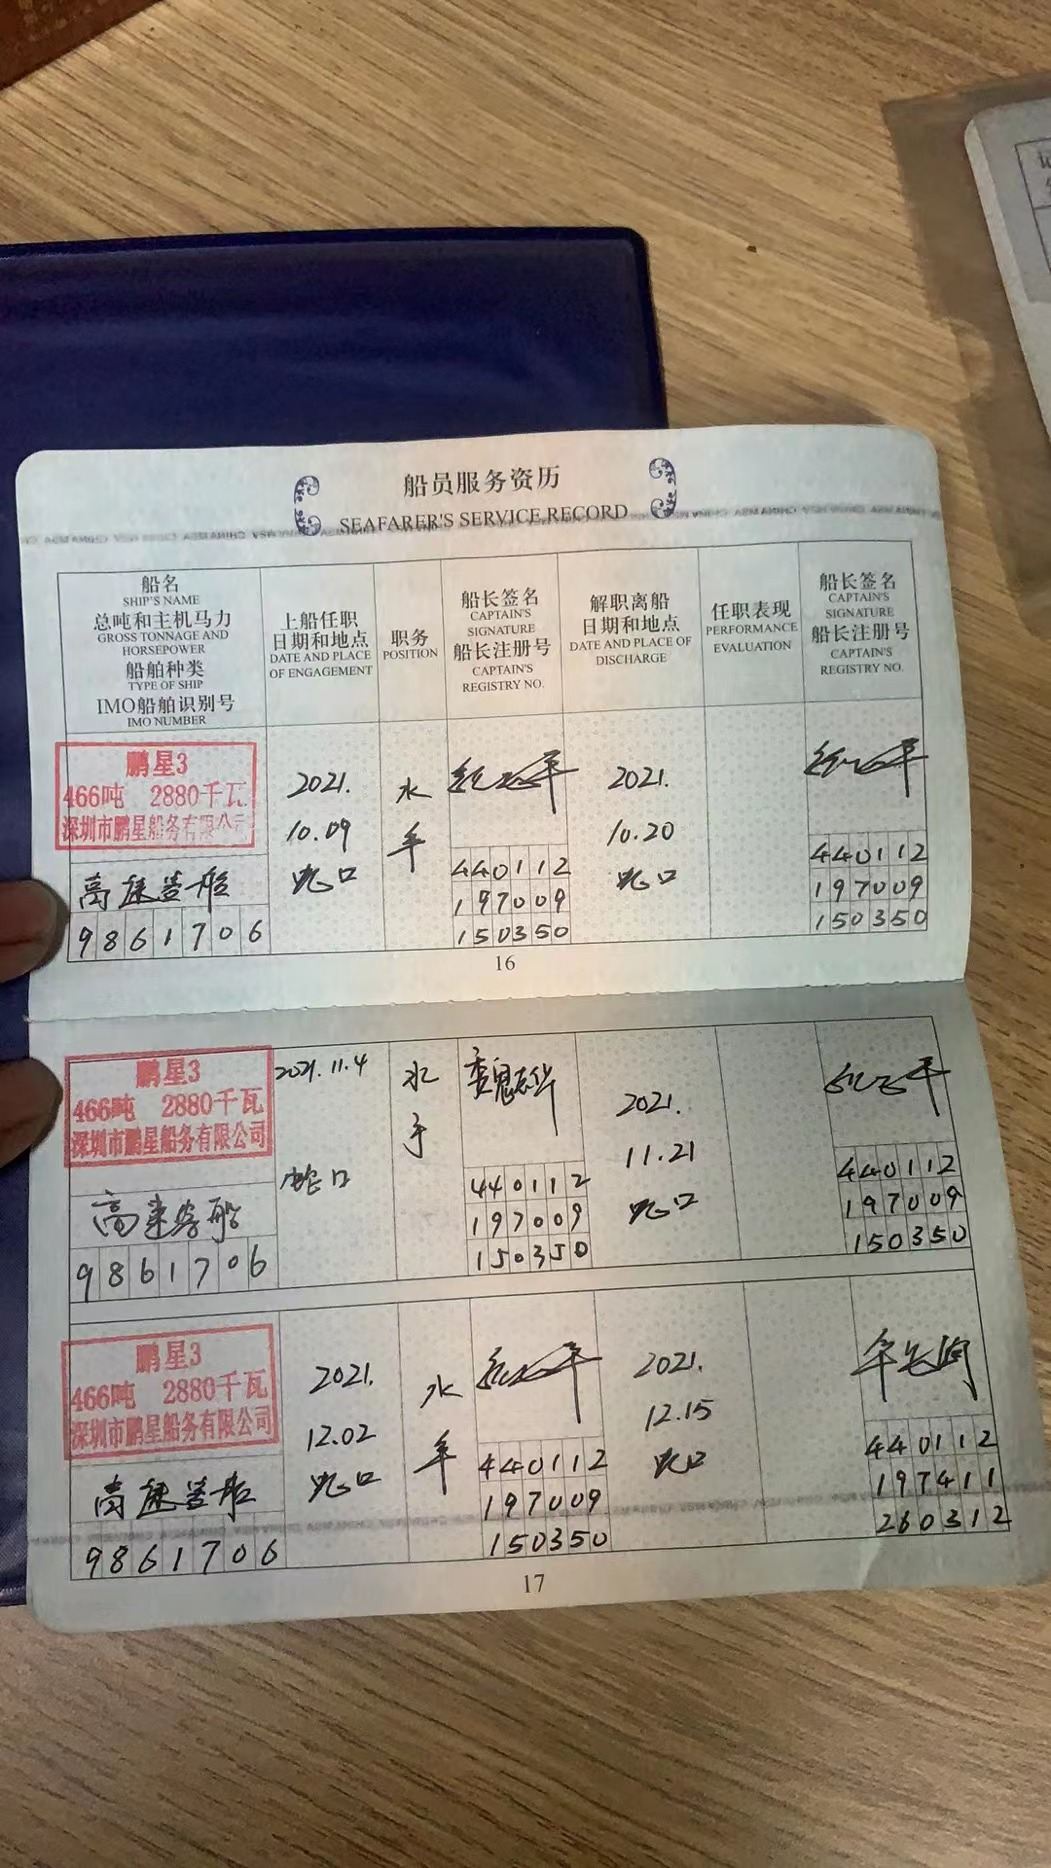 船员服务资历
SEAFARER'S SERVICE RECORD
船名
SHIP'S NAME
总吨和主机马力
GROSS TONNAGE AND
HORSEPOWER
船舶种类
TYPE OF SHIP
IMO船舶识别号
IMO NUMBER
上船任职
日期和地点
DATE AND PLACE
OF ENGAGEMENT
职务
POSITION
船长签名
CAPTAIN'S
SIGNATURE
船长注册号
CAPTAIN'S
REGISTRY NO.
解职离船
日期和地点
DATE AND PLACE OF
DISCHARGE
任职表现
PERFORMANCE
EVALUATION
船长签名
CAPTAIN'S
SIGNATURE
船长注册号
CAPTAIN'S
REGISTRY NO.
鹏星3
466吨 2880千瓦
深圳市鹏星船务有限公司
高速客船
9861706
2021.
10.09
蛇口
水
手
440112
197009
150350
2021.
10.20
蛇口
440112
197009
150350
16
鹏星3
466吨 2880千瓦
深圳市鹏星船务有限公司
高速客船
9861706
2021.11.4
蛇口
水
手
440112
197009
150350
2021.
11.21
蛇口
440112
197009
150350
鹏星3
466吨 2880千瓦
深圳市鹏星船务有限公司
高速客船
9861706
2021.
12.02
蛇口
水
手
440112
197009
150350
2021.
12.15
蛇口
440112
197411
260312
17